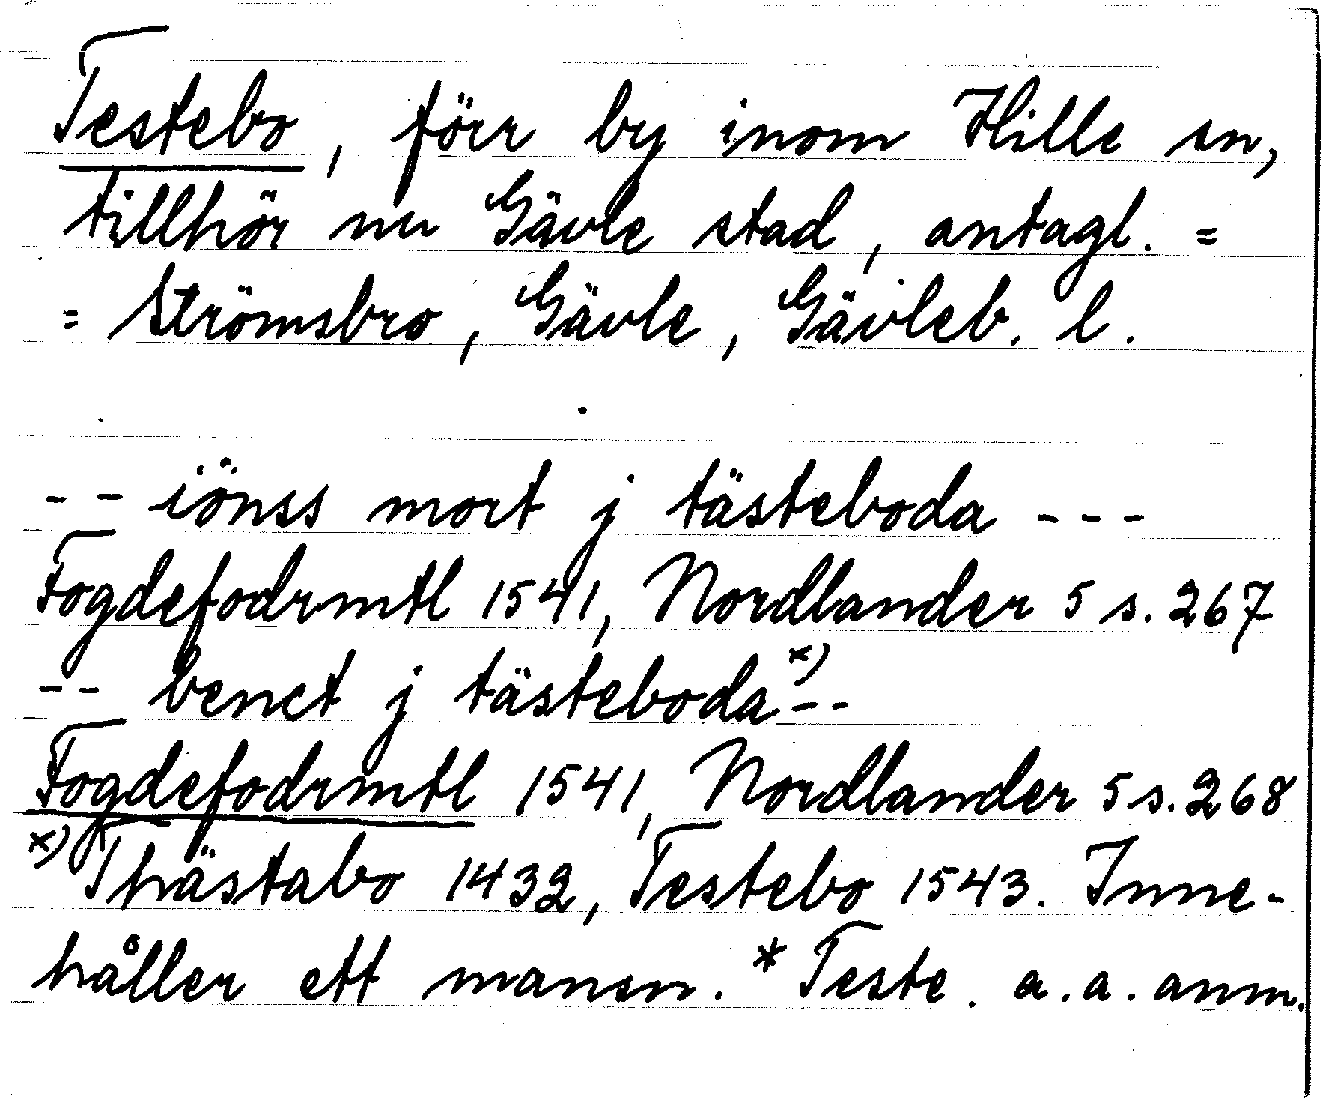 Testebo, förr by inom Hille sn,
tillhör nu Gävle stad, antagl. =
= Strömsbro, Gävle, Gävleb. l.
-- iönss mort j tästeboda ---
Fogdefodrmtl 1541, Nordlander 5 s. 267
-- benct j tästeboda x) --
Fogdefodrmtl 1541, Nordlander 5 s. 268
x) Thästabo 1432, Testebo 1543. Inne-
håller ett mansn. *Teste. a.a. anm.